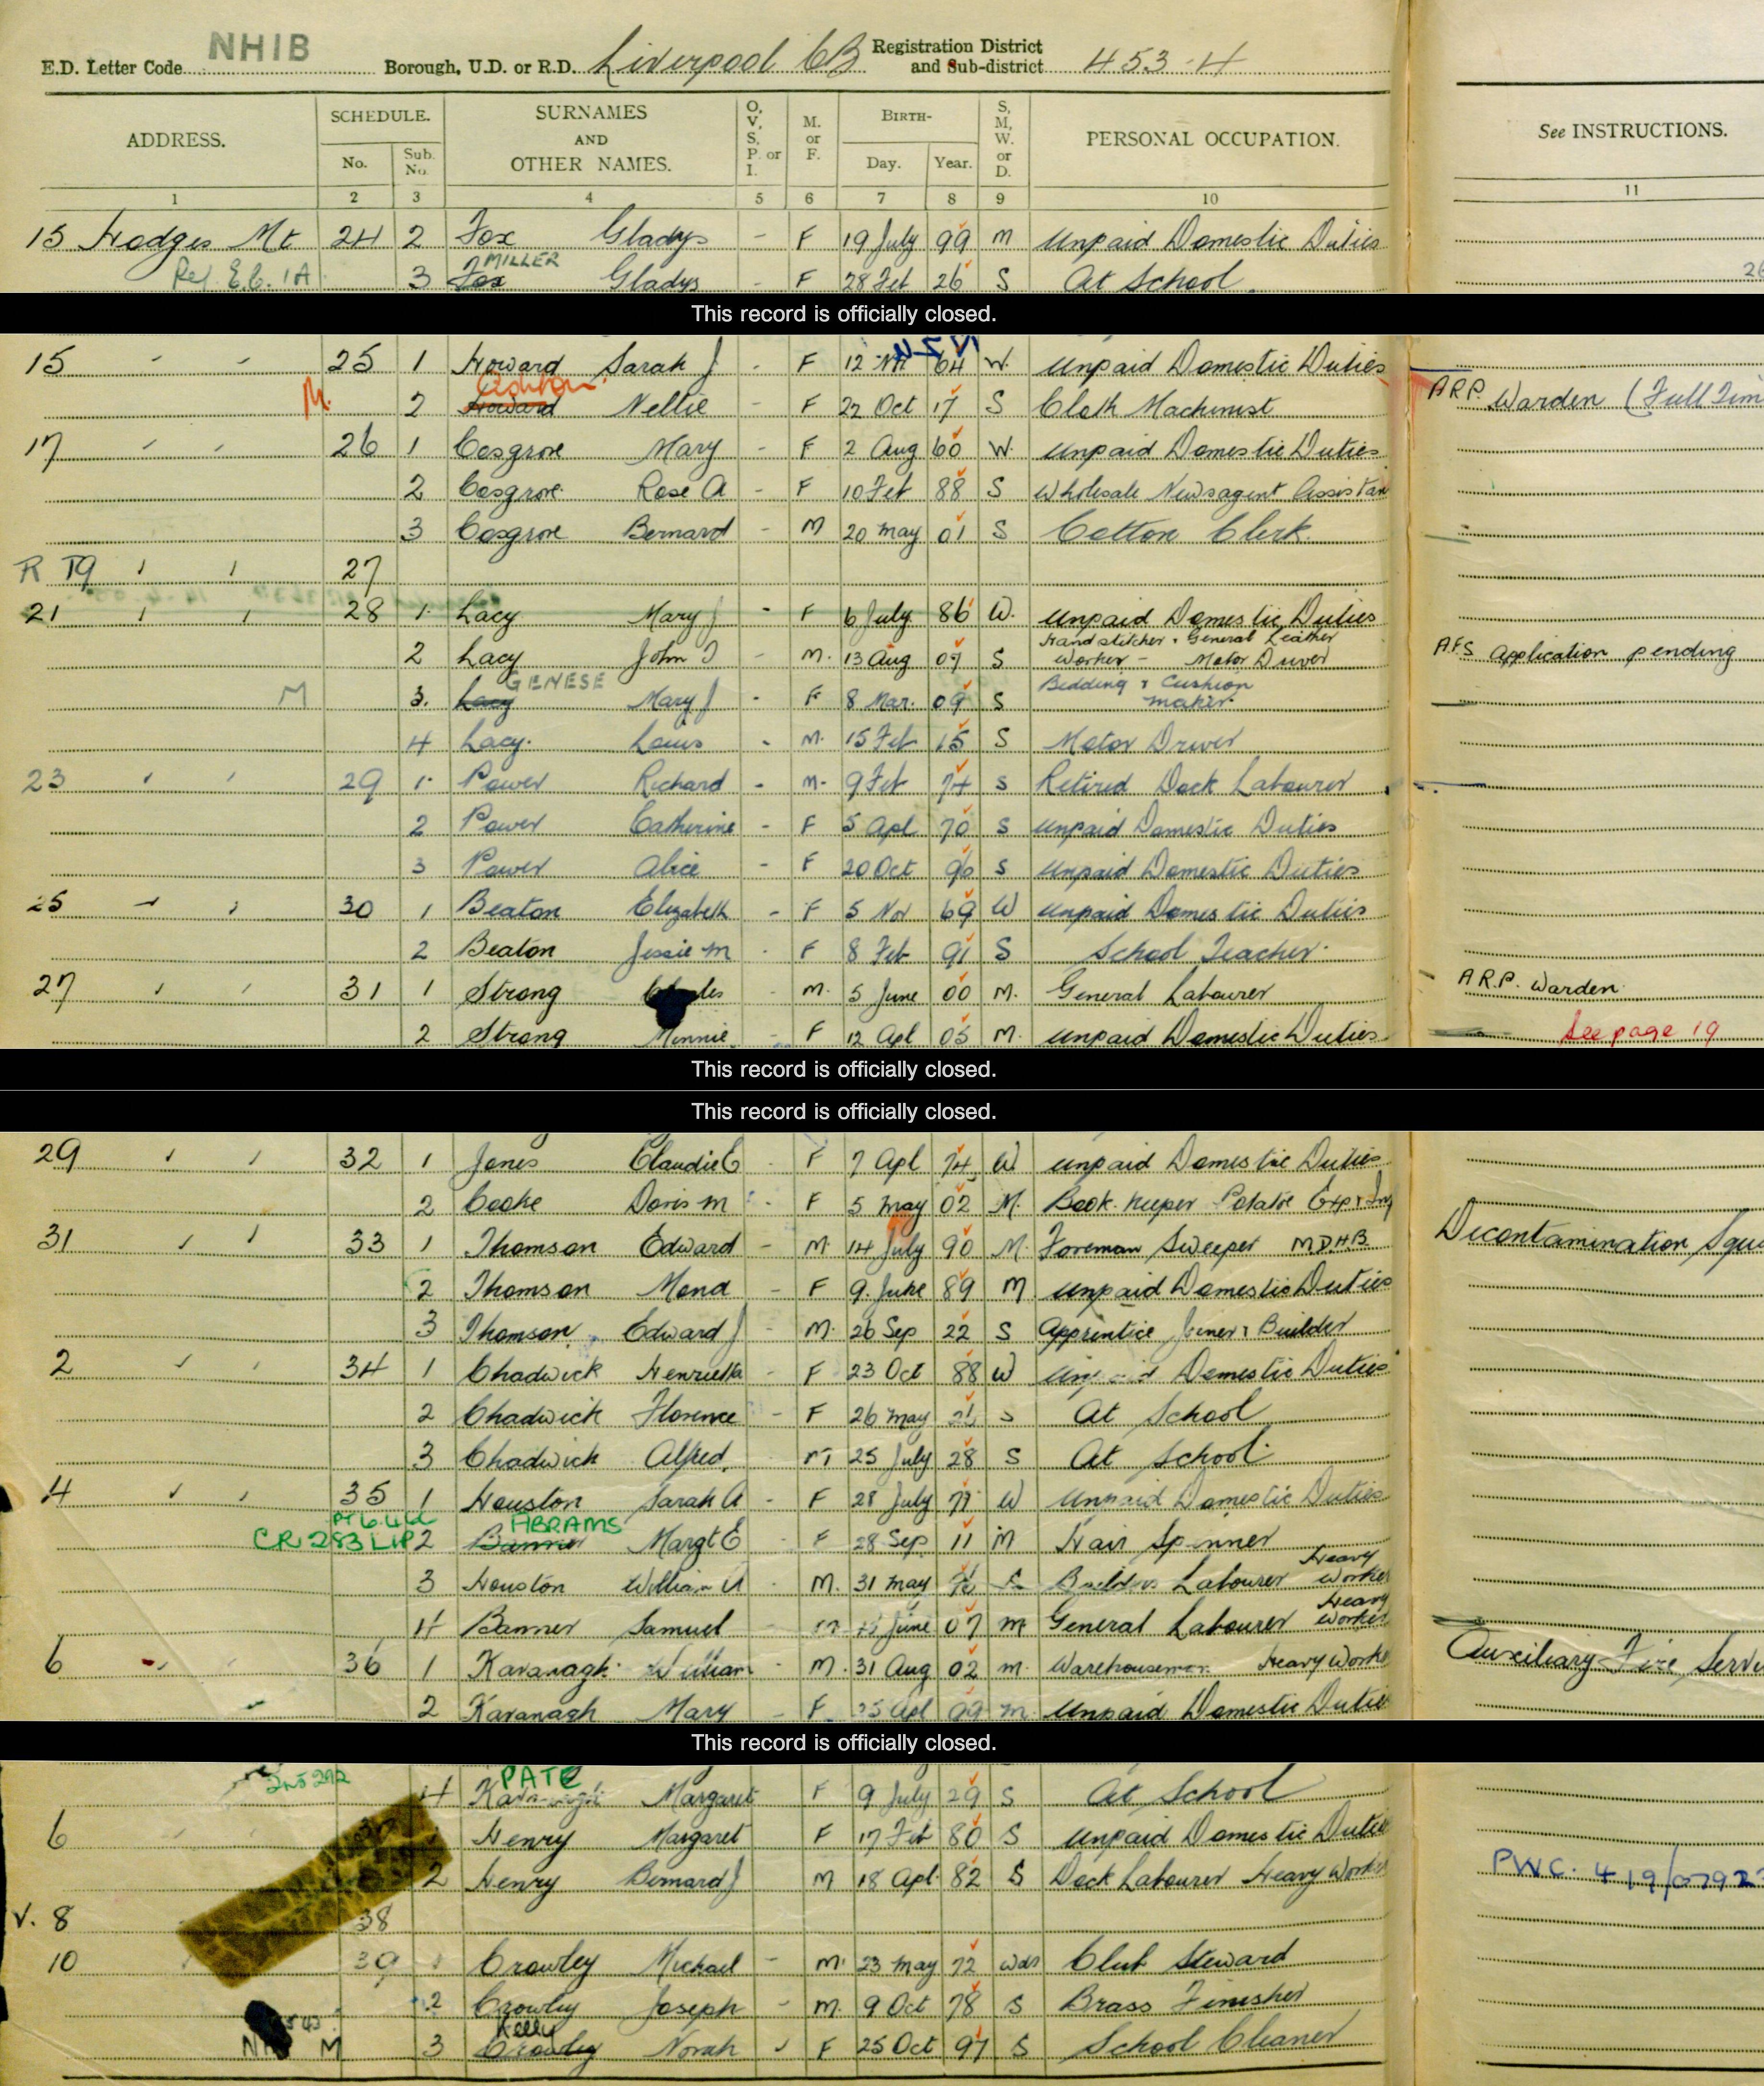 NHIB
E.D. Letter Code Borough, U.D. or R.D. Liverpool CB Registration District and Sub-district 453-4
ADDRESS. SCHEDULE. No. Sub. No. SURNAMES AND OTHER NAMES. O, V, S, P. or I. M. or F. BIRTH- Day. Year. S, M, W. or D. PERSONAL OCCUPATION. See INSTRUCTIONS.
1 2 3 4 5 6 7 8 9 10 11
15 Hodges Mt 24 2 Fox Gladys - F 19 July 99 M Unpaid Domestic Duties
MILLER
Ref. E.C. 1A 3 Fox Gladys - F 28 Feb 26 S At School
This record is officially closed.
15 25 1 Howard Sarah J - F 12 64 W. Unpaid Domestic Duties
M. 2 Howard Nellie - F 22 Oct 17 S Cloth Machinist A.R.P. Warden (Full Tim
17 26 1 Cosgrove Mary - F 2 Aug 60 W. Unpaid Domestic Duties
2 Cosgrove Rose A - F 10 Feb 88 S Wholesale Newsagent Assistan
3 Cosgrove Bernard - M 20 May 01 S Cotton Clerk.
R 19 27
21 28 1 Lacy Mary J - F 6 July 86 W. Unpaid Domestic Duties
2 Lacy John M. 13 Aug 07 S Hand stitcher & General Leather Worker - Motor Driver A.F.S. Application pending
GENESE
M 3. Lacy Mary J - F 8 Mar. 09 S Bedding & Cushion maker
4 Lacy. Louis - M. 15 Feb 15 S Motor Driver
23 29 1 Power Richard - M. 9 Feb 74 S Retired Dock Labourer
2 Power Catherine - F 5 Apl 70 S Unpaid Domestic Duties
3 Power Alice - F 20 Oct S Unpaid Domestic Duties
25 30 1 Beaton Elizabeth - F 5 Nov 69 W Unpaid Domestic Duties
2 Beaton Jessie M F 8 Feb 91 S School Teacher
27 31 1 Strong M. 5 June 00 M. General Labourer A.R.P. Warden
2 Strong Minnie F 12 Apl 05 M. Unpaid Domestic Duties See page 19
This record is officially closed.
This record is officially closed.
29 32 1 Jones Claudie E F 7 Apl 74 W Unpaid Domestic Duties
2 Cooke Doris M F 5 May 02 M. Book Keeper Potato Exp & Imp
31 33 1 Thomson Edward - M. 14 July 90 M. Foreman Sweeper M.D.H.B. Decontamination Squ
2 Thomson Mond - F 9. June 89 M Unpaid Domestic Duties
3 Thomson Edward J - M. 26 Sep 22 S Apprentice Joiner & Builder
2 34 1 Chadwick Henrietta - F 23 Oct 88 W Unpaid Domestic Duties
2 Chadwick Florence - F 26 May S At School
3 Chadwick Alfred. M 25 July 28 S At School
4 35 1 Houston Sarah A - F 28 July W Unpaid Domestic Duties
ABRAMS
CR 283 LIP 2 Banner Margt E F 28 Sep 11 M Hair Spinner
3 Houston William A M. 31 May Builders Labourer Heavy Worker
4 Banner Samuel June 07 M General Labourer Heavy Worker
6 36 1 Kavanagh William M. 31 Aug 02 M. Warehouseman Heavy Worke Auxiliary Fire Servi
2 Kavanagh Mary F. Apl 09 M. Unpaid Domestic Duties
This record is officially closed.
PATE
4 Kavanagh Margaret F 9 July 29 S At School
6 Henry Margaret F 17 Feb 80 S Unpaid Domestic Dutie
2 Henry Bernard J M 18 Apl. 82 S Dock Labourer Heavy Worker PWC. 419/07923
V. 8 38
10 39 Crowley Michael - M. 23 May 72 Wdr Club Steward
2 Crowley Joseph - M. 9 Oct 78 S Brass Finisher
Kelly
M 3 Crowley Norah F 25 Oct 97 S School Cleaner